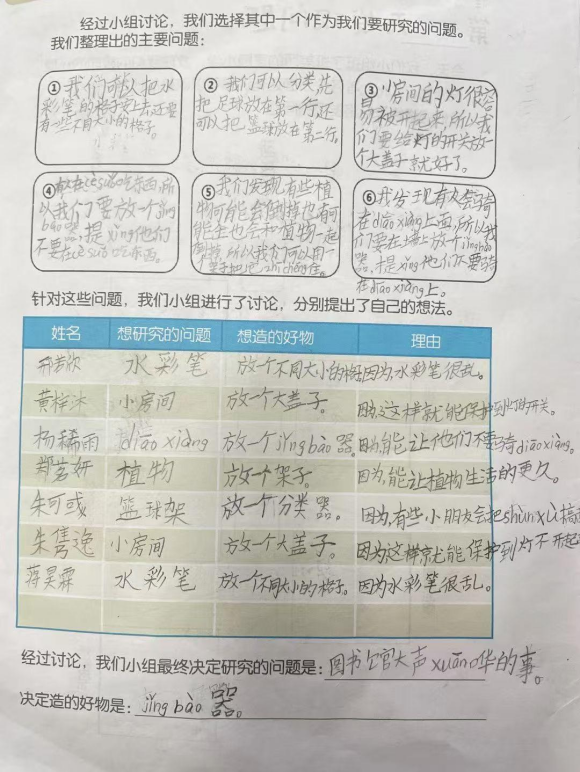 经过小组讨论，我们选择其中一个作为我们要研究的问题。
我们整理出的主要问题：
① 我们可以把水
彩笔的格子变去还要
有一些不用大小的格子。
② 我们可以分类，先
把足球放在第一行，还
可以把篮球放在第二行。
③ 小房间的灯很容
易被开起来，所以我
们要给灯的开关放一
个大盖子就好了。
④ 在cèsuǒ吃东西，所
以我们要放一个jǐng
bào器，提xǐng他们
不要在cèsuǒ吃东西。
⑤ 我们发现有些植
物可能会倒掉也有可
能虫也会和植物一起
倒掉，所以我们可以用一
架子把它zhīchēng住。
⑥ 我发现有人会骑
在diāo xiàng上面，所以我
们要在墙上放个jǐngbào
器，提xǐng他们不要骑
在diāo xiàng上。
针对这些问题，我们小组进行了讨论，分别提出了自己的想法。
姓名 想研究的问题 想造的好物 理由
水彩笔 放一个不用大小的格子 因为，水彩笔很乱。
黄梓沐 小房间 放一个大盖子。 因为，这样就能保护到灯的开关。
杨稀雨 diāo xiàng 放一个jǐng bào器。 因为，能让他们不要骑diāo xiàng。
郑茗妍 植物 放一个架子。 因为，能让植物生活的更久。
朱可或 篮球架 放一个分类器。 因为，有些小朋友会把shùn xù搞
朱隽逸 小房间 放一个大盖子。 因为这样就能保护到灯不开起
蒋昊霖 水彩笔 放一个不用大小的格子。 因为水彩笔很乱。
经过讨论，我们小组最终决定研究的问题是：图书馆大声xuān华的事。
决定造的好物是：jǐng bào 器。